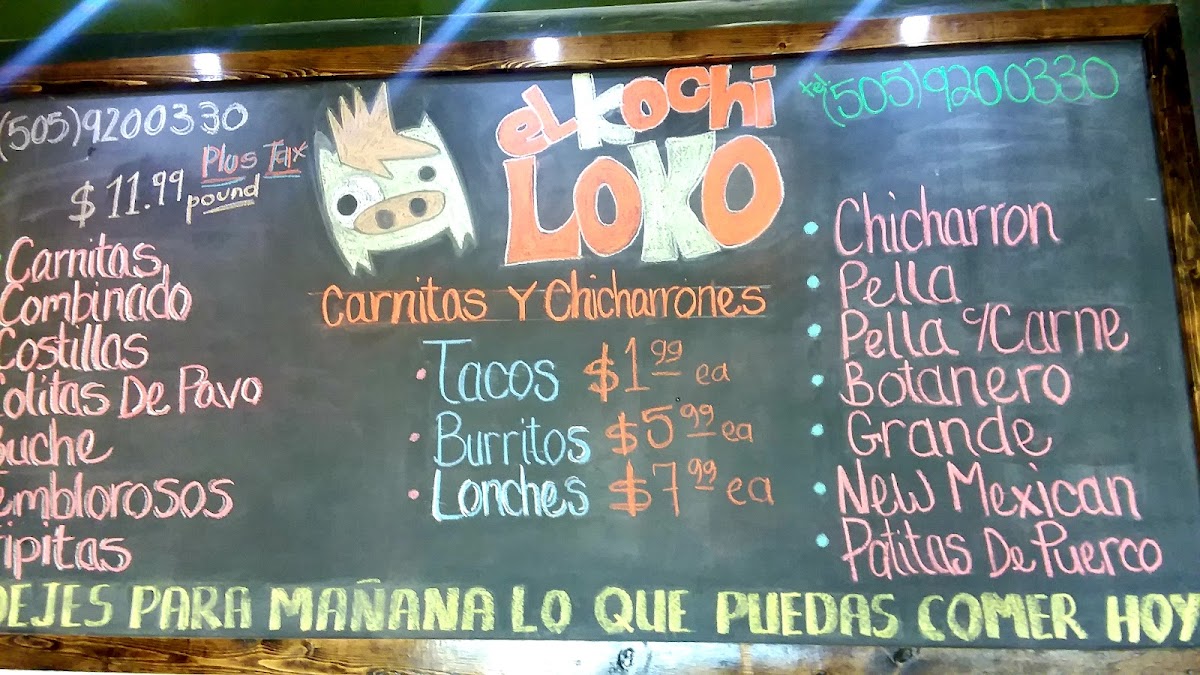 (505)9200330
Plus Tax
$11.99 pound
Carnitas
Combinado
Costillas
Colitas De Pavo
Buche
Temblorosos
Tipitas
el Kochi
Loko
Carnitas Y Chicharrones
• Tacos $1.99 ea
• Burritos $5.99 ea
• Lonches $7.99 ea
Tel: (505)9200330
• Chicharron
• Pella
• Pella c/Carne
• Botanero
• Grande
• New Mexican
• Patitas De Puerco
DEJES PARA MAÑANA LO QUE PUEDAS COMER HOY